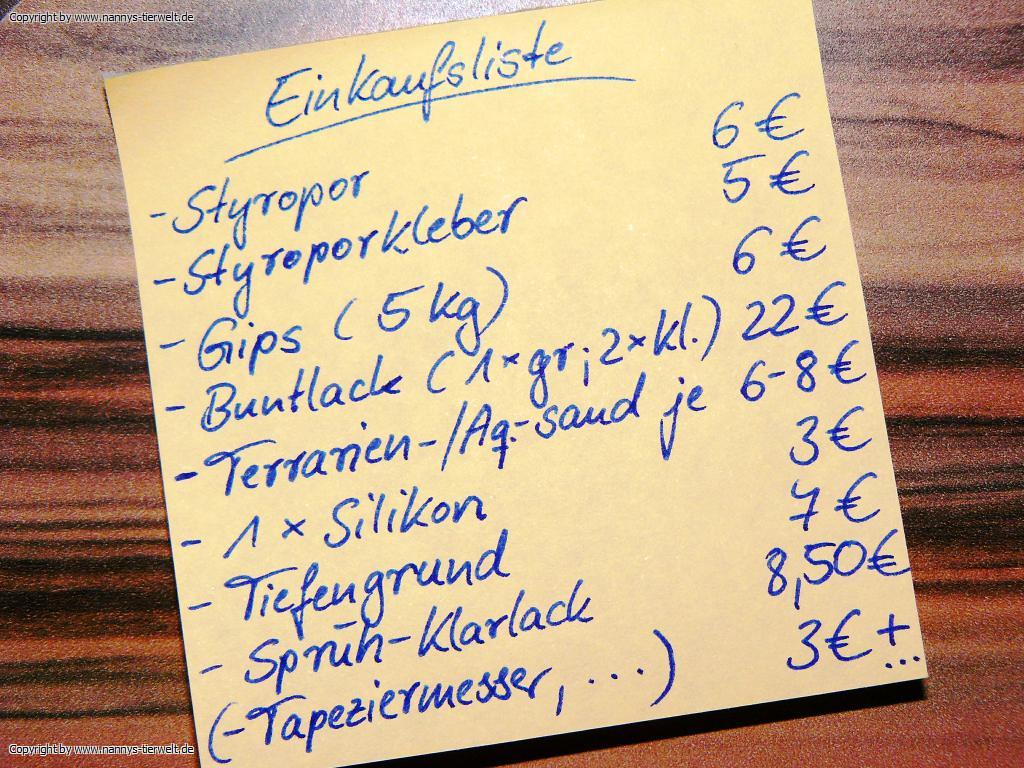 Copyright by www.nannys-tierwelt.de
Einkaufsliste
- Styropor 6 €
- Styroporkleber 5 €
- Gips (5 kg) 6 €
- Buntlack (1× gr; 2× kl.) 22 €
- Terrarien-/Aq.-sand je 6-8 €
- 1 × Silikon 3 €
- Tiefengrund 7 €
- Sprüh-Klarlack 8,50 €
(- Tapeziermesser, ...) 3 € + ...
Copyright by www.nannys-tierwelt.de